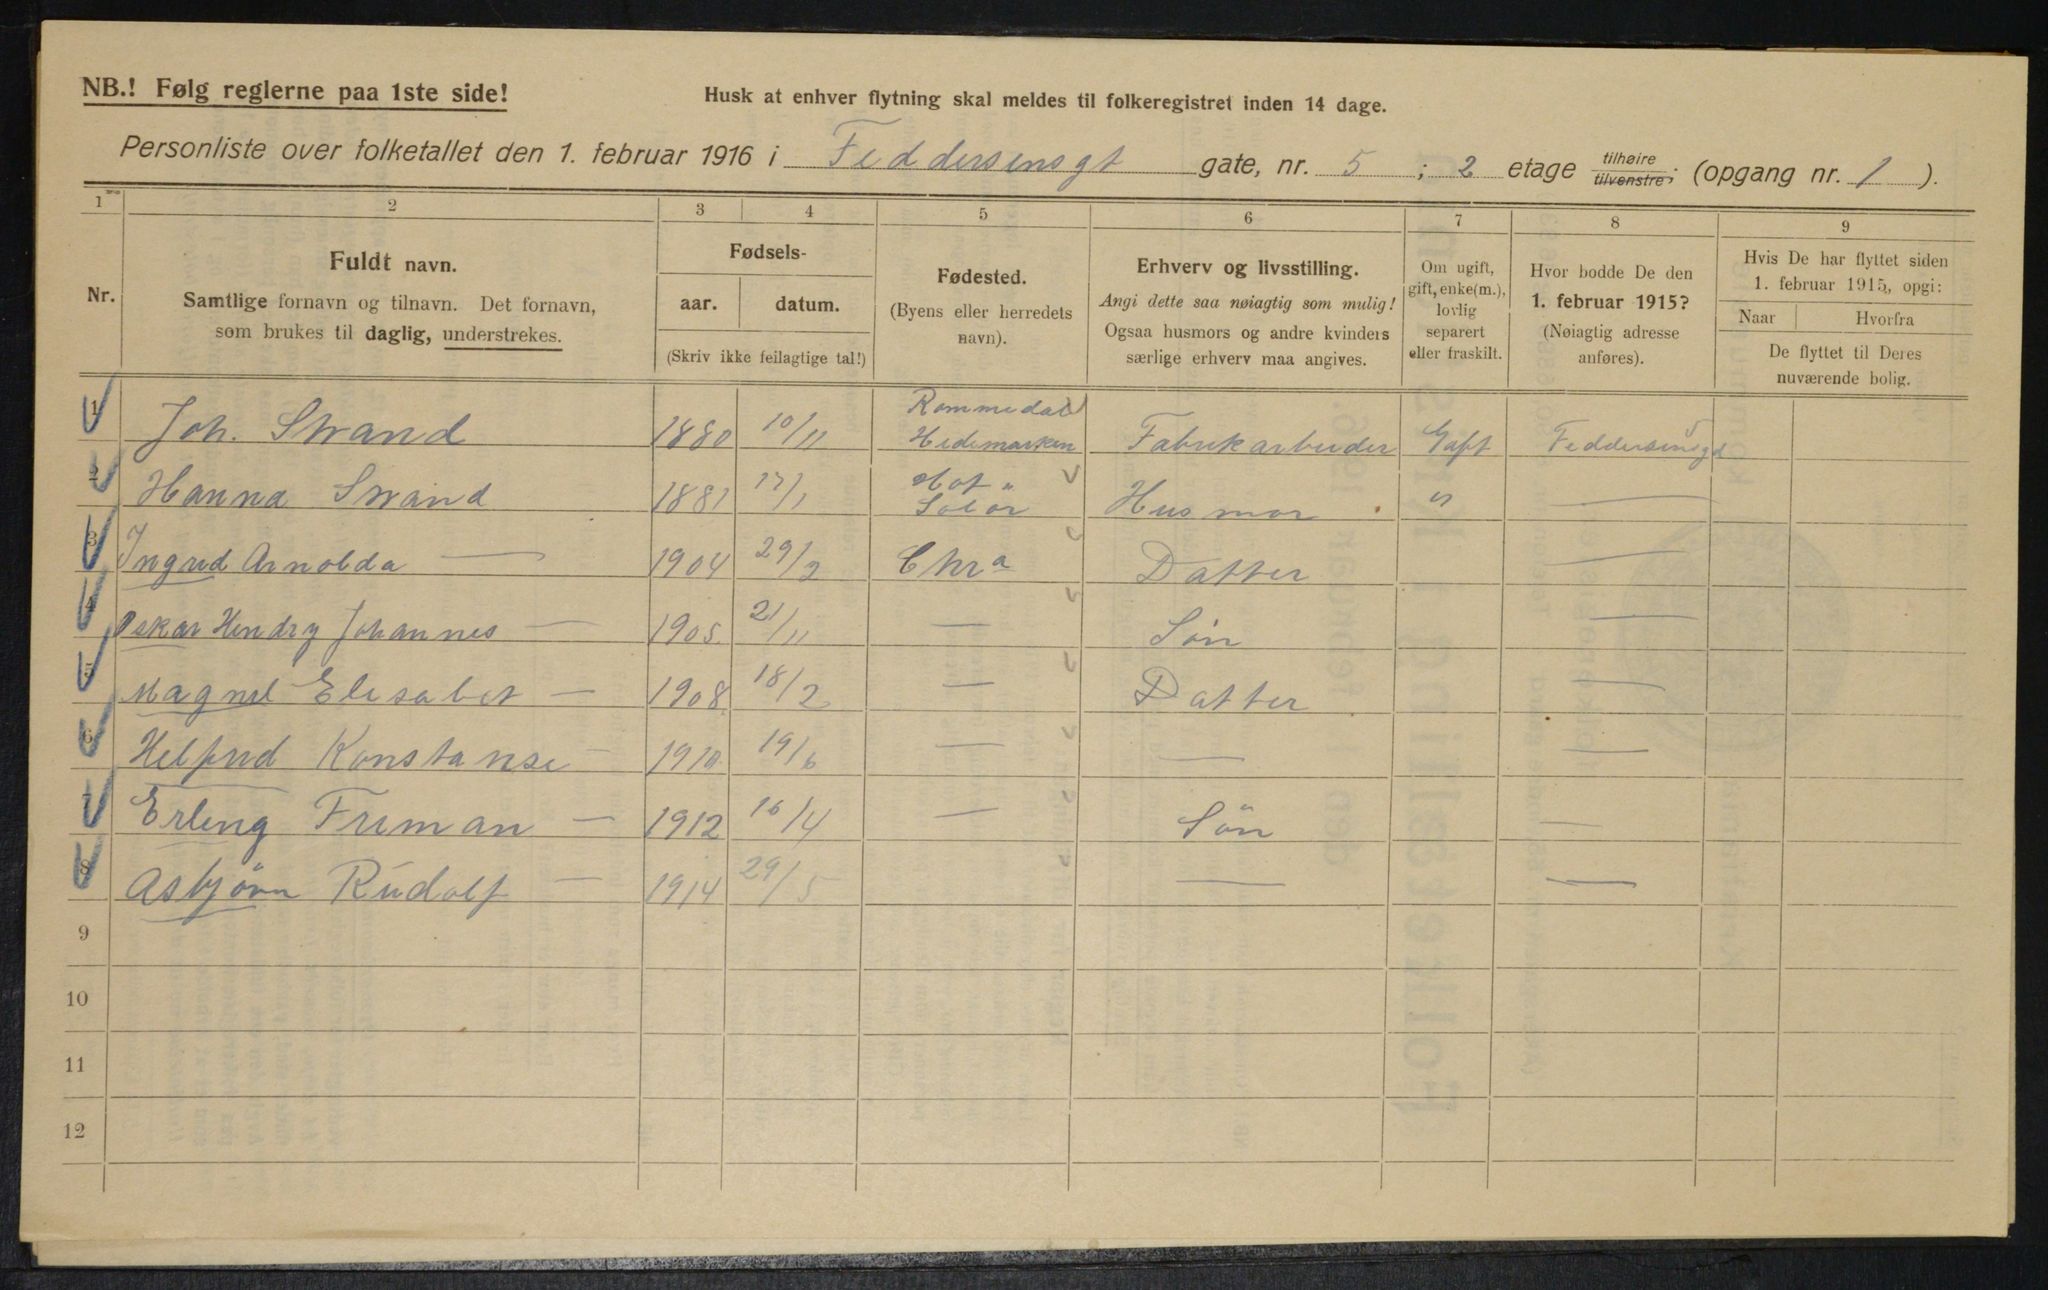 NB.! Følg reglerne paa 1ste side!
Husk at enhver flytning skal meldes til folkeregistret inden 14 dage.
Personliste over folketallet den 1. februar 1916 i Feddersensgt gate, nr. 5 ; 2 etage tilhøire tilvenstre; (opgang nr. 1 ).
1 2 3 4 5 6 7 8 9
Nr.
Fuldt navn.
Samtlige fornavn og tilnavn. Det fornavn,
som brukes til daglig, understrekes.
Fødsels-
aar. datum.
(Skriv ikke feilagtige tal!)
Fødested.
(Byens eller herredets
navn).
Erhverv og livsstilling.
Angi dette saa nøiagtig som mulig!
Ogsaa husmors og andre kvinders
særlige erhverv maa angives.
Om ugift,
gift, enke(m.),
lovlig
separert
eller fraskilt.
Hvor bodde De den
1. februar 1915?
(Nøiagtig adresse
anføres).
Hvis De har flyttet siden
1. februar 1915, opgi:
Naar Hvorfra
De flyttet til Deres
nuværende bolig.
1 Joh. Strand 1880 10/11 Rommedal Hedemarken Fabrikarbeider Gift Feddersensgd 5
2 Hanna Strand 1881 17/1 Hof " Solör Husmor " —
3 Ingrid Arnolda — 1904 29/2 Chra Datter —
4 Oskar Hendry Johannes — 1905 21/11 — Sön —
5 Magnel Elisabet — 1908 18/2 — Datter —
6 Helfrid Konstanse — 1910 19/6 — — —
7 Erling Friman — 1912 16/4 — Sön —
8 Asbjörn Rudolf — 1914 29/5 — —
9
10
11
12